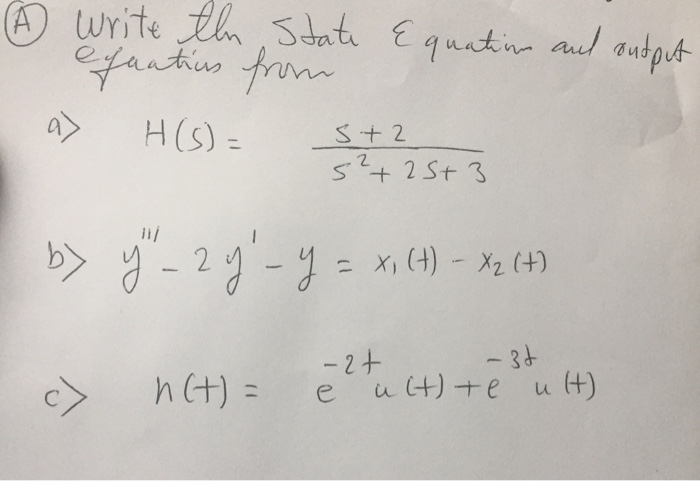 (A) Write the State Equation and output
equations from
a) H(S) = S + 2 / S² + 2S + 3
b) y''' - 2y' - y = x₁(t) - x₂(t)
c) h(t) = e^{-2t} u(t) + e^{-3t} u(t)